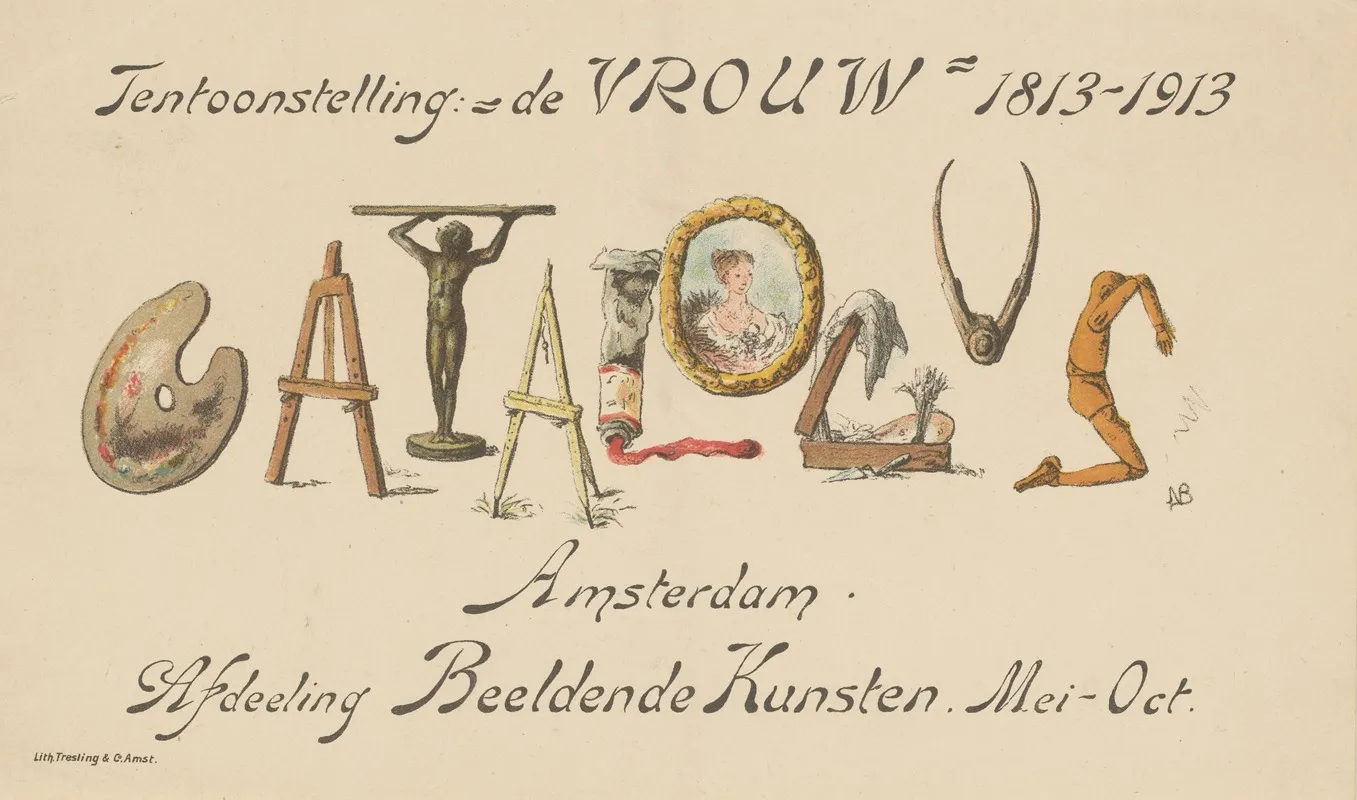 Tentoonstelling: = de VROUW = 1813-1913
CATALOGUS
Amsterdam.
Afdeeling Beeldende Kunsten. Mei-Oct.
AB
Lith. Tresling & Co. Amst.